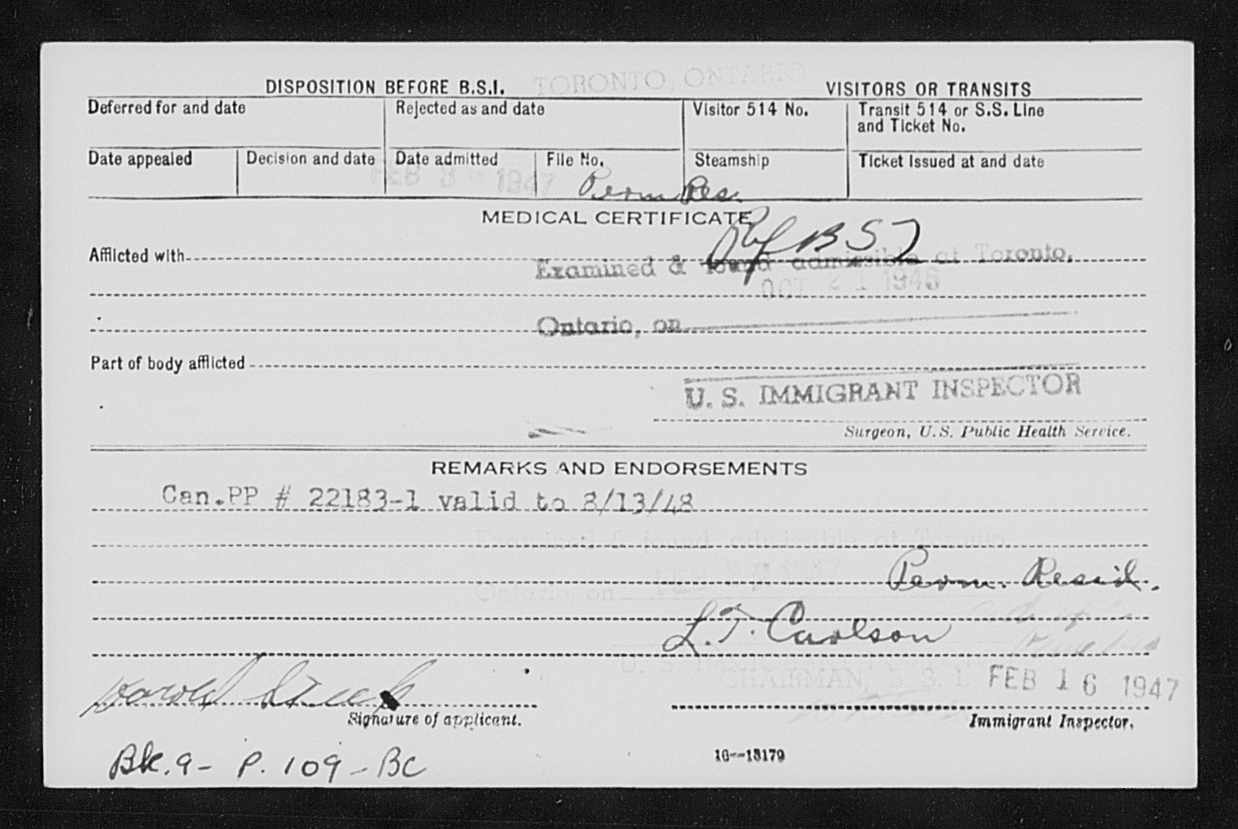 TORONTO, ONTARIO
DISPOSITION BEFORE B.S.I. VISITORS OR TRANSITS
Deferred for and date Rejected as and date Visitor 514 No. Transit 514 or S.S. Line
and Ticket No.
Date appealed Decision and date Date admitted File No. Steamship Ticket issued at and date
FEB 8 - 1947 Perm Res.
MEDICAL CERTIFICATE
Ref BSI
Afflicted with
Examined & found admissible at Toronto,
OCT 21 1946
Ontario, on
Part of body afflicted
U. S. IMMIGRANT INSPECTOR
Surgeon, U.S. Public Health Service.
REMARKS AND ENDORSEMENTS
Can.PP # 22183-1 valid to 8/13/48
Examined & found admissible at Toronto
Perm. Resid.
Ontario, on
L.T. Carlson
CHAIRMAN, B. S. I.
FEB 16 1947
Harold
Signature of applicant. Immigrant Inspector.
Bk. 9 - P. 109 - BC
16—13179